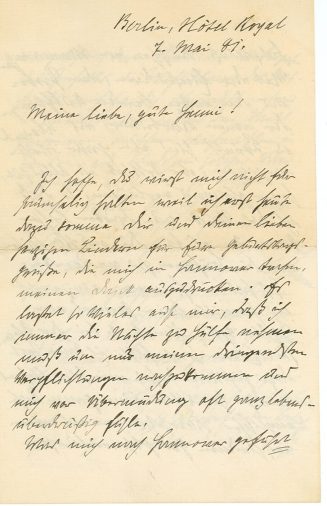 Berlin, Hôtel Royal
7. Mai 81.
Meine liebe, gute Henni!
Ich hoffe, du wirst mich nicht für
halten weil ich erst heute
dazu komme, Dir und Deinen lieben
herzigen Kindern für Eure Geburtstags-
grüße, die mich in Hannover trafen,
meinen Dank auszudrücken. Es
lastet so Vieles auf mir, daß ich
immer die Nächte zu Hülfe nehmen
muß um nur meinen dringendsten
Verpflichtungen nachzukommen und
mich vor Übermüdung oft ganz lebens-
überdrüssig fühle.
Was mich nach Hannover geführt